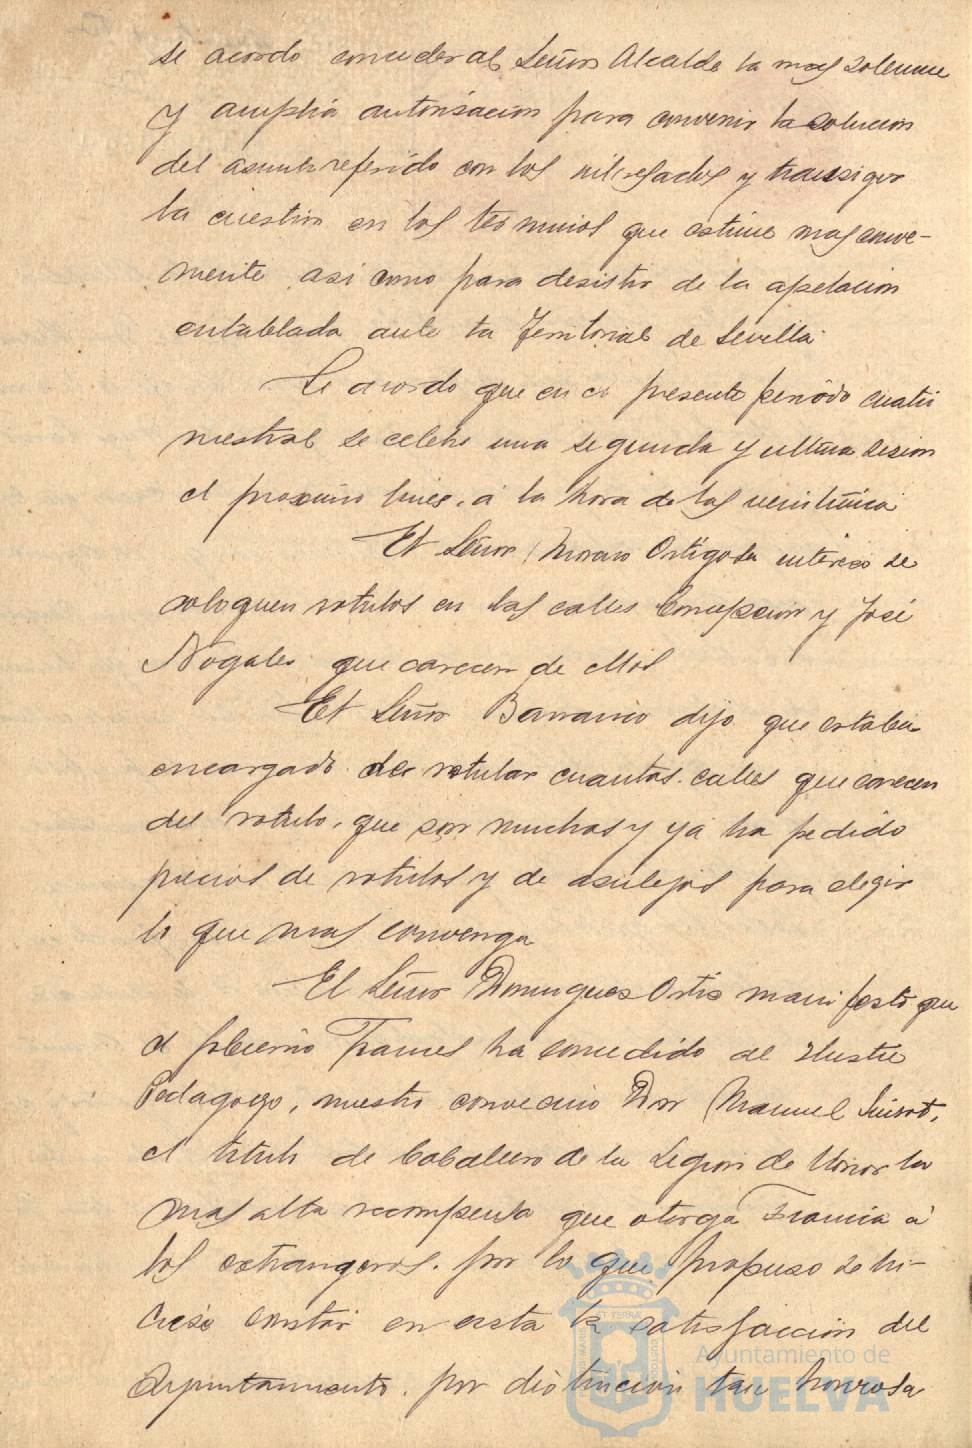 se acordo conceder al Señor Alcalde la mas solemne
y amplia autorisacion para convenir la solucion
del asunto referido con los interesados y transigir
la cuestion en los terminos que estime mas conve-
niente asi como para desistir de la apelacion
entablada ante la Territorial de Sevilla
Se acordo que en el presente periodo cuatri
mestral se celebre una segunda y ultima sesion
el proximo lunes, á la hora de las veintiuna
El Señor Moreno Ortigosa intereso se
coloquen rotulos en las calles Concepcion y José
Nogales que carecen de ellos
El Señor Barranco dijo que estaba
encargado de rotular cuantas calles que carecen
del rotulo, que son muchas y ya ha pedido
precios de rotulos y de asulejos para elegir
lo que mas convenga
El Señor Domingues Ortis manifestó que
el gobierno Frances ha concedido al Ilustre
Pedagogo, nuestro convecino Don Manuel Siurot,
el titulo de Caballero de la Legion de Honor la
mas alta recompensa que otorga Francia á
los extrangeros, por lo que propuso se hi-
ciese constar en acta la satisfaccion del
Ayuntamiento, por distincion tan honrosa
Ayuntamiento de
HUELVA